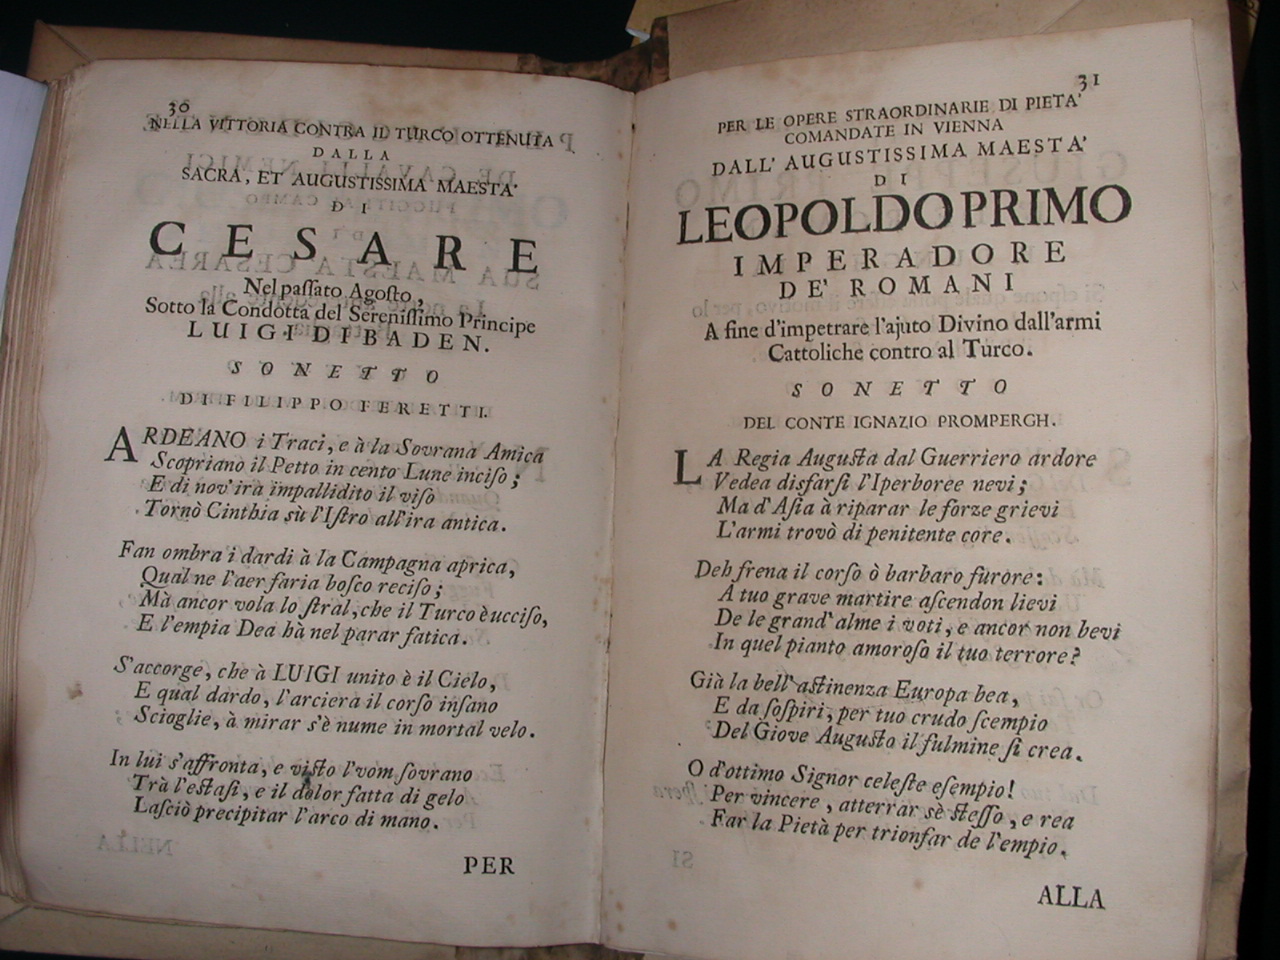 30
NELLA VITTORIA CONTRA IL TURCO OTTENUTA
DALLA
SACRA, ET AUGUSTISSIMA MAESTA'
DI
CESARE
Nel paſſato Agoſto,
Sotto la Condotta del Sereniſſimo Principe
LUIGI DI BADEN.
SONETTO
DI FILIPPO FERETTI.
ARDEANO i Traci, e à la Sovrana Amica
Scopriano il Petto in cento Lune inciſo;
E di nov'ira impallidito il viſo
Tornò Cinthia sù l'Iſtro all'ira antica.
Fan ombra i dardi à la Campagna aprica,
Qual ne l'aer faria boſco reciſo;
Mà ancor vola lo ſtral, che il Turco è ucciſo,
E l'empia Dea hà nel parar fatica.
S'accorge, che à LUIGI unito è il Cielo,
E qual dardo, l'arciera il corſo inſano
Scioglie, à mirar s'è nume in mortal velo.
In lui s'affronta, e viſto l'vom ſovrano
Trà l'eſtaſi, e il dolor fatta di gelo
Laſciò precipitar l'arco di mano.
PER
31
PER LE OPERE STRAORDINARIE DI PIETA'
COMANDATE IN VIENNA
DALL' AUGUSTISSIMA MAESTA'
DI
LEOPOLDO PRIMO
IMPERADORE
DE' ROMANI
A fine d'impetrare l'ajuto Divino dall'armi
Cattoliche contro al Turco.
SONETTO
DEL CONTE IGNAZIO PROMPERGH.
LA Regia Auguſta dal Guerriero ardore
Vedea disfarſi l'Iperboree nevi;
Ma d'Aſia à riparar le forze grievi
L'armi trovò di penitente core.
Deh frena il corſo ò barbaro furore:
A tuo grave martire aſcendon lievi
De le grand'alme i voti, e ancor non bevi
In quel pianto amoroſo il tuo terrore?
Già la bell'aſtinenza Europa bea,
E da ſoſpiri, per tuo crudo ſcempio
Del Giove Auguſto il fulmine ſi crea.
O d'ottimo Signor celeſte eſempio!
Per vincere, atterrar sè ſteſſo, e rea
Far la Pietà per trionfar de l'empio.
ALLA